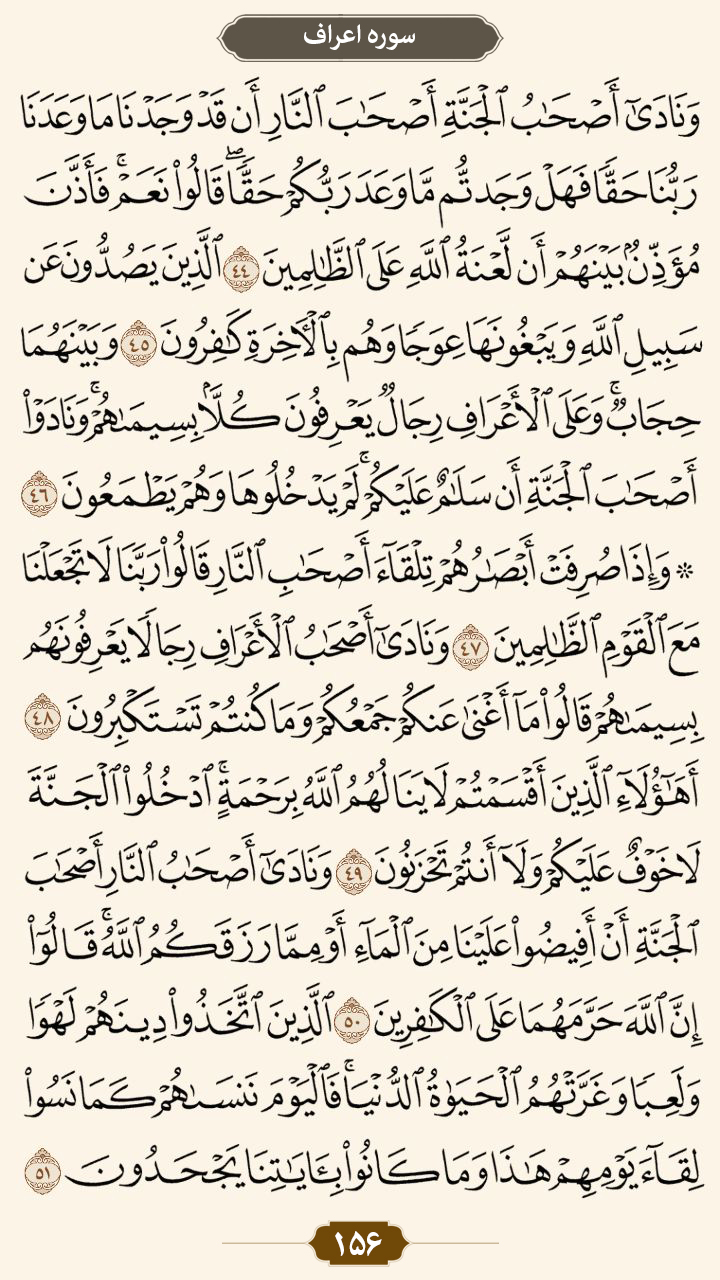 سوره اعراف
وَنَادَىٰٓ أَصْحَٰبُ ٱلْجَنَّةِ أَصْحَٰبَ ٱلنَّارِ أَن قَدْ وَجَدْنَا مَا وَعَدَنَا
رَبُّنَا حَقًّا فَهَلْ وَجَدتُّم مَّا وَعَدَ رَبُّكُمْ حَقًّاۖ قَالُوا۟ نَعَمْۚ فَأَذَّنَ
مُؤَذِّنٌۢ بَيْنَهُمْ أَن لَّعْنَةُ ٱللَّهِ عَلَى ٱلظَّٰلِمِينَ ٤٤ ٱلَّذِينَ يَصُدُّونَ عَن
سَبِيلِ ٱللَّهِ وَيَبْغُونَهَا عِوَجًا وَهُم بِٱلْءَاخِرَةِ كَٰفِرُونَ ٤٥ وَبَيْنَهُمَا
حِجَابٌۚ وَعَلَى ٱلْأَعْرَافِ رِجَالٌ يَعْرِفُونَ كُلًّۢا بِسِيمَىٰهُمْۚ وَنَادَوْا۟
أَصْحَٰبَ ٱلْجَنَّةِ أَن سَلَٰمٌ عَلَيْكُمْۚ لَمْ يَدْخُلُوهَا وَهُمْ يَطْمَعُونَ ٤٦
۞ وَإِذَا صُرِفَتْ أَبْصَٰرُهُمْ تِلْقَآءَ أَصْحَٰبِ ٱلنَّارِ قَالُوا۟ رَبَّنَا لَا تَجْعَلْنَا
مَعَ ٱلْقَوْمِ ٱلظَّٰلِمِينَ ٤٧ وَنَادَىٰٓ أَصْحَٰبُ ٱلْأَعْرَافِ رِجَالًا يَعْرِفُونَهُم
بِسِيمَىٰهُمْ قَالُوا۟ مَآ أَغْنَىٰ عَنكُمْ جَمْعُكُمْ وَمَا كُنتُمْ تَسْتَكْبِرُونَ ٤٨
أَهَٰٓؤُلَآءِ ٱلَّذِينَ أَقْسَمْتُمْ لَا يَنَالُهُمُ ٱللَّهُ بِرَحْمَةٍۚ ٱدْخُلُوا۟ ٱلْجَنَّةَ
لَا خَوْفٌ عَلَيْكُمْ وَلَآ أَنتُمْ تَحْزَنُونَ ٤٩ وَنَادَىٰٓ أَصْحَٰبُ ٱلنَّارِ أَصْحَٰبَ
ٱلْجَنَّةِ أَنْ أَفِيضُوا۟ عَلَيْنَا مِنَ ٱلْمَآءِ أَوْ مِمَّا رَزَقَكُمُ ٱللَّهُۚ قَالُوٓا۟
إِنَّ ٱللَّهَ حَرَّمَهُمَا عَلَى ٱلْكَٰفِرِينَ ٥٠ ٱلَّذِينَ ٱتَّخَذُوا۟ دِينَهُمْ لَهْوًا
وَلَعِبًا وَغَرَّتْهُمُ ٱلْحَيَوٰةُ ٱلدُّنْيَاۚ فَٱلْيَوْمَ نَنسَىٰهُمْ كَمَا نَسُوا۟
لِقَآءَ يَوْمِهِمْ هَٰذَا وَمَا كَانُوا۟ بِـَٔايَٰتِنَا يَجْحَدُونَ ٥١
۱۵۶